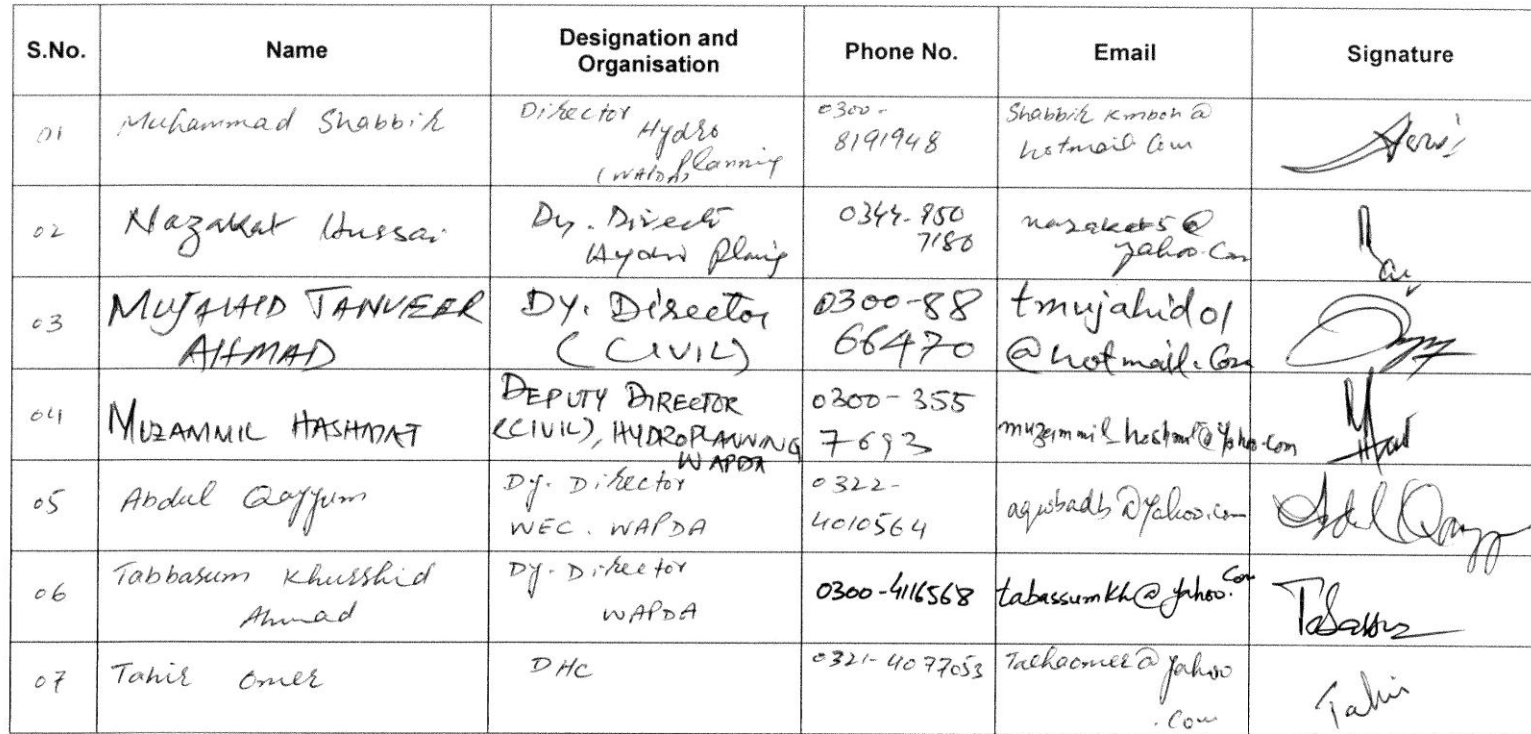 S.No. Name Designation and Organisation Phone No. Email Signature
01 Muhammad Shabbir Director Hydro Planning (WAPDA) 0300-8191948 Shabbir kmboh@hotmail Com
02 Nazakat Hussai Dy. Directo Hydro Planig 0344-950 7180 nazakat5@yahoo.Com
03 MUJAHID TANVEER AHMAD DY. Director (CIVIL) 0300-88 66470 tmujahid01@hotmail.Com
04 MUZAMMIL HASHMAT DEPUTY DIRECTOR (CIVIL), HYDROPLANNING WAPDA 0300-355 7693 muzammil_hashmt@Yahoo.com
05 Abdul Qayyum Dy. Director WEC. WAPDA 0322-4010564 @Yahoo.com Abdul Qayy
06 Tabbasum Khurshid Ahmad Dy. Director WAPDA 0300-4116568 tabassumkh@yahoo.Com Tabassu
07 Tahir Omer DHC 0321-4077053 Talhaomer@yahoo.com Tahir